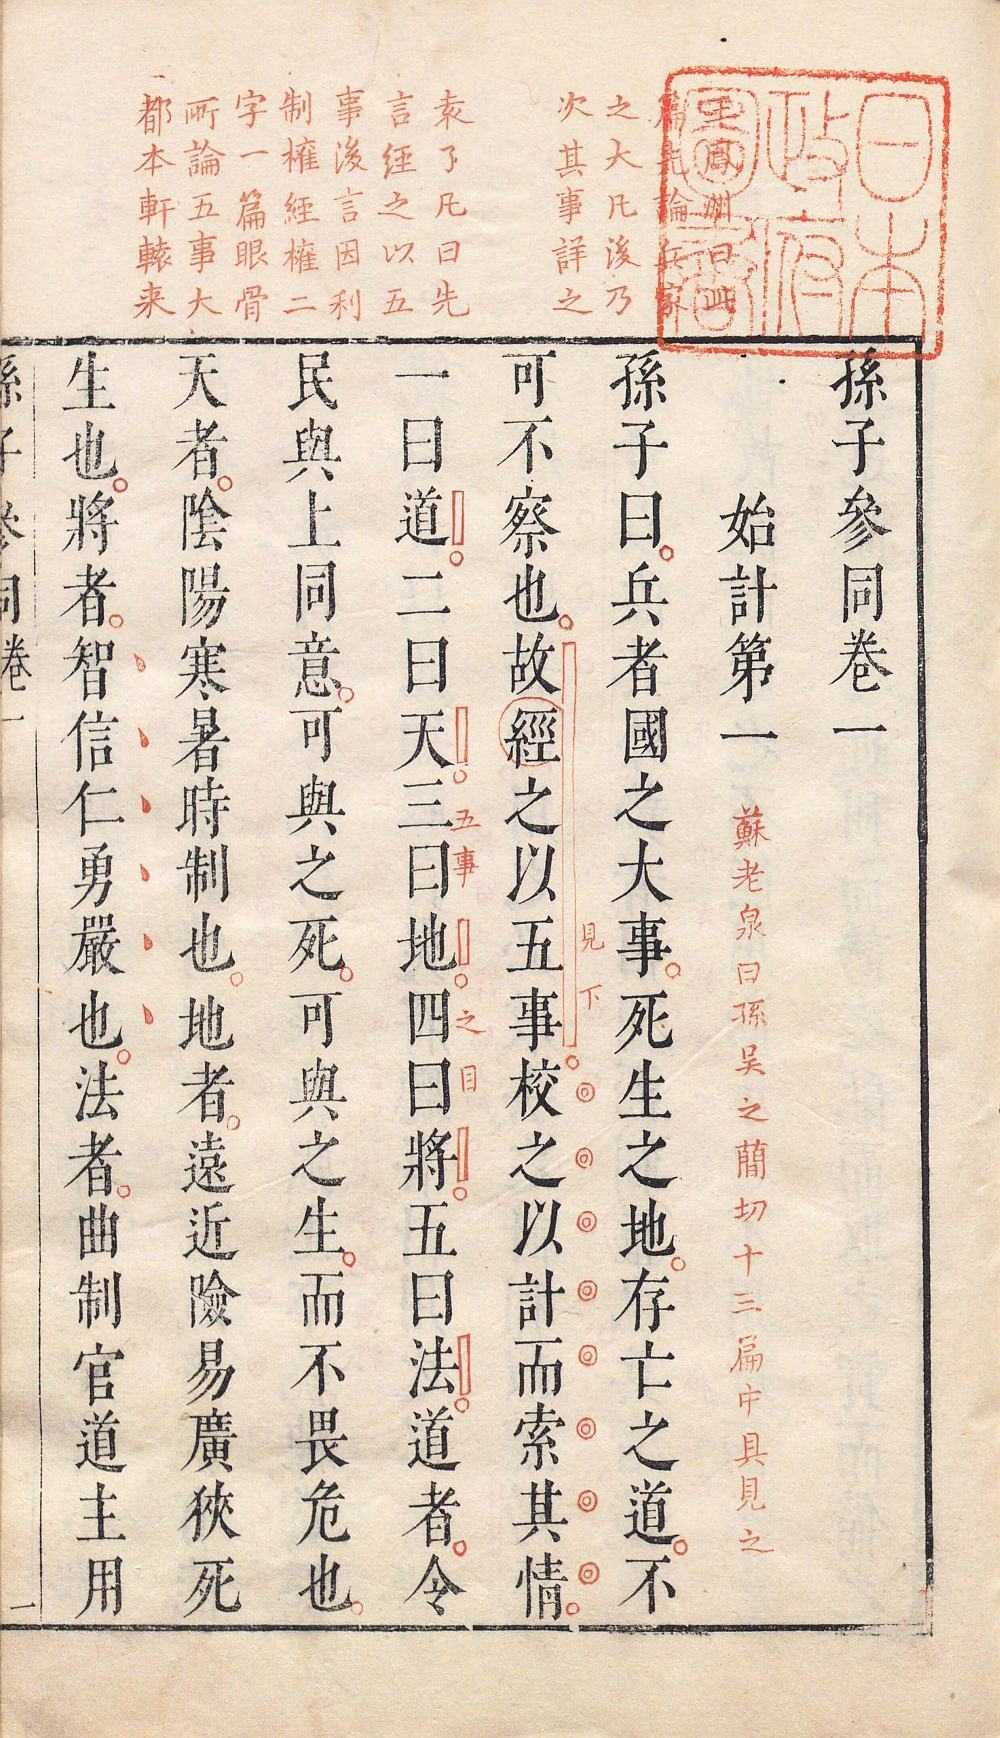 日本
政府
圖書
王鳳洲曰此
篇先論兵家
之大凡後乃
次其事詳之
袁了凡曰先
言經之以五
事後言因利
制權經權二
字一篇眼骨
所論五事大
都本軒轅来
孫子參同卷一
始計第一
蘇老泉曰孫吴之簡切十三篇中具見之
孫子曰兵者國之大事死生之地存亡之道不
見下
可不察也故經之以五事校之以計而索其情
五事之目
一曰道二曰天三曰地四曰將五曰法道者令
民與上同意可與之死可與之生而不畏危也
天者陰陽寒暑時制也地者遠近險易廣狹死
生也將者智信仁勇嚴也法者曲制官道主用
孫子參同卷一
一